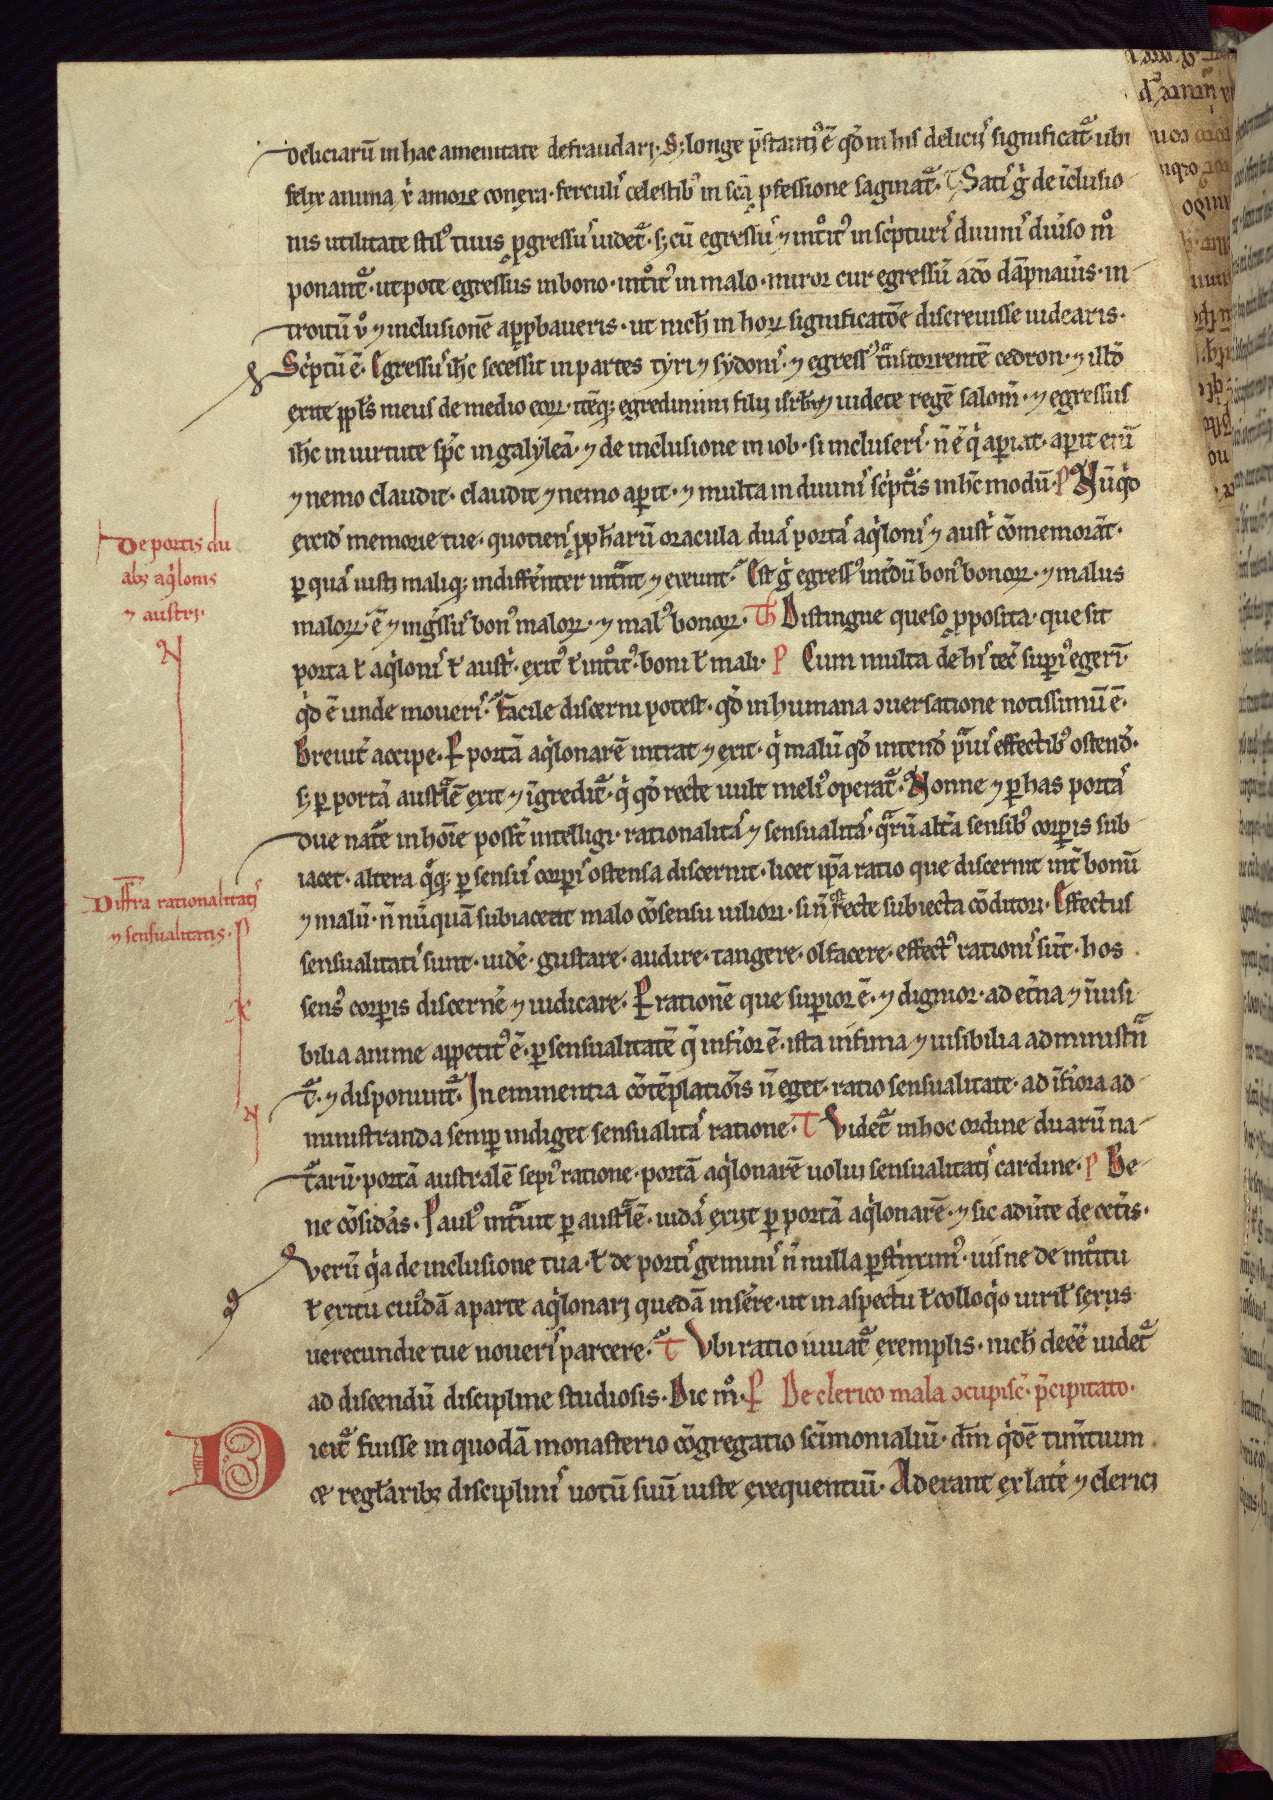 deliciarū in hac amenitate defraudari· Sꝫ longe p̄stantiꝰ ē qd̄ in his deliciis significat᷑· ubi
felix anima xp̄i amore conexa· ferculis celestibꝰ in scā ꝓfessione saginat᷑· T Satis gͥ de īclusio-
nis utilitate stilꝰ tuus ꝓgressus uidet᷑· sꝫ cū egressus ⁊ introitꝰ in sc͛pturis diuinis diuiso mͦ
ponant᷑· utpote egressus in bono· introitꝰ in malo· miror cur egressū adō dāpnaueris· in-
troitū uͦ ⁊ inclusionē apꝓbaueris· ut nich̄ in hoꝝ significatōe discreuisse uidearis·
Scͥptū ē· Egressus ih̄c secessit in partes tyri ⁊ sydonis· ⁊ egressꝰ trās torrentē cedron· ⁊ illd̄
exite ppl̄s meus de medio eoꝝ· itēqꝫ egredimini filii isrl̄ ⁊ uidete regē salom̄· ⁊ egressus
ih̄c in uirtute sp̄c in galyleā· ⁊ de inclusione in iob· si incluserit· n̄ ē qͥ aperiat· aperit enī
⁊ nemo claudit· claudit ⁊ nemo aperit· ⁊ multa in diuinis sc͛pturis in hc̄ modū· P Nū qͥd
excid᷑ memorie tue· quotiens ꝓph̄arū oracula duas portas aqͥlonis ⁊ austͥ cōmemorāt·
ꝑ quas iusti maliqꝫ indiffēnter intrant ⁊ exeunt· Est gͥ egressꝰ interdū bonꝰ bonoꝝ· ⁊ malus
maloꝝ· ē ⁊ ingressus bonꝰ maloꝝ· ⁊ malꝰ bonoꝝ· Th Distingue queso ꝓposita· que sit
porta ł aqͥlonis ł austͥ· exitꝰ ł introitꝰ· boni ł mali· P Cum multa de his tec̄ superiꝰ egerī·
qͥd ē unde moueris· facile discerni potest· qd̄ in humana ↄuersatione notissimū ē·
Breuit͛ accipe· Per portā aqͥlonarē intrat ⁊ exit· qͥ malū qd̄ intend᷑ prauis effectibꝰ ostend᷑·
sꝫ ꝑ portā australē exit ⁊ īgredit᷑· qͥ qd̄ recte uult meliꝰ operat᷑· Nonne ⁊ ꝑ has portas
due nate in hoīe possūt intelligi· rationalitas ⁊ sensualitas· quarū altera sensibꝰ corꝑis sub-
iacet· altera quoqꝫ ꝑ sensus corꝑis ostensa discernit· licet ip̄a ratio que discernit int͛ bonū
⁊ malū· n̄ nūquā subiaceat malo cōsensu uiliori· si n̄ est recte subiecta cōditori· Effectus
sensualitatis sunt· uide᷑· gustare· audire· tangere· olfacere· effectꝰ rationis sūt· hos
sensꝰ corꝑis discerne᷑ ⁊ iudicare· Per rationē que superior ē· ⁊ dignior· ad et͛na ⁊ inuisi-
bilia anime appetitꝰ ē· ꝑ sensualitatē q̄ inferior ē· ista infima ⁊ uisibilia administrā-
t᷑· ⁊ disponunt᷑· In eminentia cōtēplatiōis n̄ eget· ratio sensualitate· ad īferiora ad-
ministranda semꝑ indiget sensualitas ratione· T Videt᷑ in hoc ordine duarū na-
tarū· portā australē sepiri ratione· portā aqͥlonarē uolui sensualitatis cardine· P Be-
ne cōsideras· Paulꝰ intrauit ꝑ australē· iudas exiit ꝑ portā aqͥlonarē· ⁊ sic aduerte de cet͛is·
Verū qͥa de inclusione tua· ł de portis geminis n̄ nulla ꝑstrinximꝰ· uisne de introitu
ł exitu cuiusdā a parte aqͥlonari quedā inserere· ut in aspectu ł colloqͥo uirili serus
uerecundie tue noueris parcere· T Vbi ratio iuuat᷑ exemplis· nich̄ deee᷑ uidet᷑
ad discendū discipline studiosis· Dic mͦ· P De clerico mala ↄcupisc̄· p̄cipitato·
Dicit᷑ fuisse in quodā monasterio cōgregatio sc̄imonialiū· dn̄m qͥdē timentium
ac regl̄aribꝫ disciplinis uotū suū iuste exequentiū· Aderant ex latere ⁊ clerici
De portis du
abꝫ aqͥlonis
⁊ austri·
Diffr̄a rationalitatis
⁊ sensualitatis·